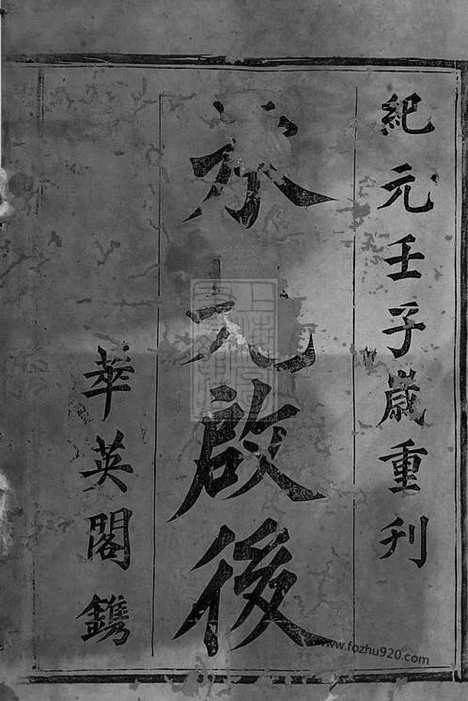 紀元壬子歲重刊
承先啟後
萃英閣鐫
www.fozhu920.com